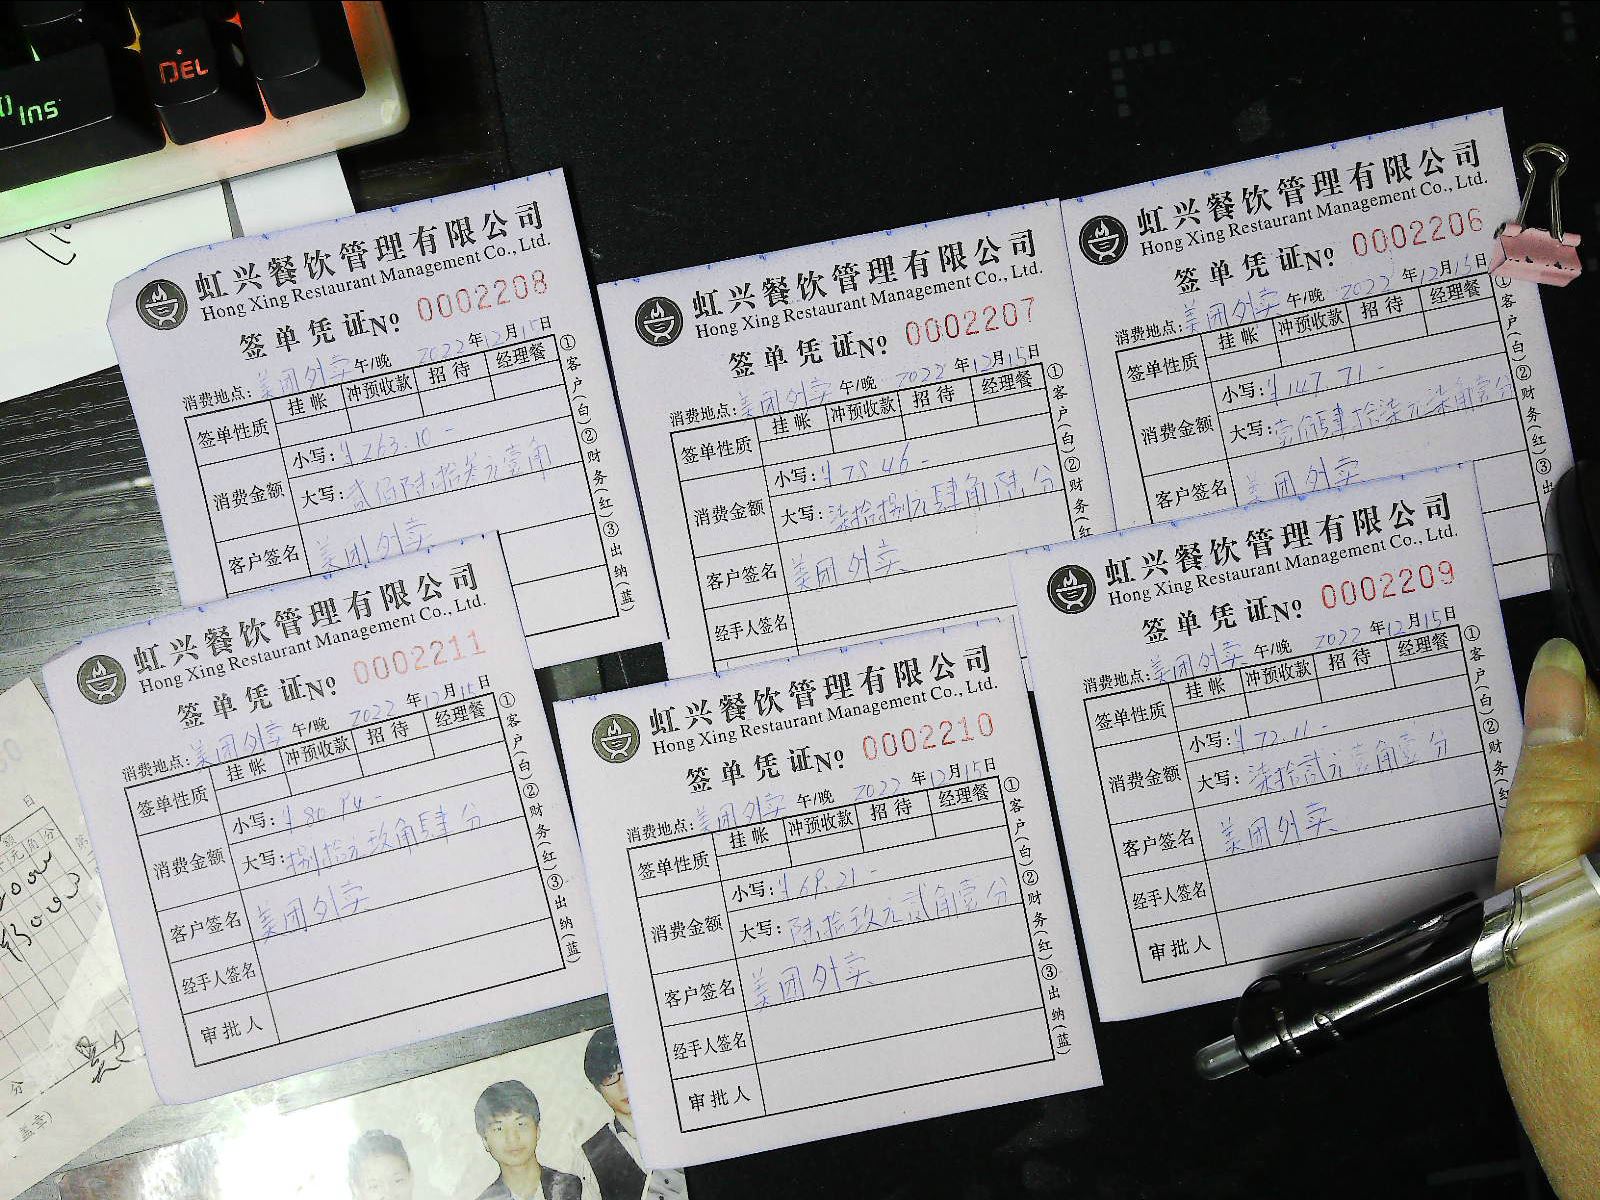 Ins
DEL
虹兴餐饮管理有限公司
Hong Xing Restaurant Management Co., Ltd.
签单凭证No. 0002208
消费地点:美团外卖 午/晚 2022年12月15日
签单性质 挂帐 冲预收款 招待 经理餐
消费金额 小写:¥263.10-
大写:贰佰陆拾叁元壹角
客户签名 美团外卖
①客户(白)②财务(红)③出纳(蓝)
虹兴餐饮管理有限公司
Hong Xing Restaurant Management Co., Ltd.
签单凭证No. 0002207
消费地点:美团外卖 午/晚 2022年12月15日
签单性质 挂帐 冲预收款 招待 经理餐
消费金额 小写:¥78.46-
大写:柒拾捌元肆角陆分
客户签名 美团外卖
经手人签名
①客户(白)②财务(红
虹兴餐饮管理有限公司
Hong Xing Restaurant Management Co., Ltd.
签单凭证No. 0002206
消费地点:美团外卖 午/晚 2022年12月15日
签单性质 挂帐 冲预收款 招待 经理餐
消费金额 小写:¥147.71-
大写:壹佰肆拾柒元柒角壹分
客户签名 美团外卖
①客户(白)②财务(红)③出
虹兴餐饮管理有限公司
Hong Xing Restaurant Management Co., Ltd.
签单凭证No. 0002211
消费地点:美团外卖 午/晚 2022年12月15日
签单性质 挂帐 冲预收款 招待 经理餐
消费金额 小写:¥80.94-
大写:捌拾元玖角肆分
客户签名 美团外卖
经手人签名
审批人
①客户(白)②财务(红)③出纳(蓝)
虹兴餐饮管理有限公司
Hong Xing Restaurant Management Co., Ltd.
签单凭证No. 0002210
消费地点:美团外卖 午/晚 2022年12月15日
签单性质 挂帐 冲预收款 招待 经理餐
消费金额 小写:¥69.21-
大写:陆拾玖元贰角壹分
客户签名 美团外卖
经手人签名
审批人
①客户(白)②财务(红)③出纳(蓝)
虹兴餐饮管理有限公司
Hong Xing Restaurant Management Co., Ltd.
签单凭证No. 0002209
消费地点:美团外卖 午/晚 2022年12月15日
签单性质 挂帐 冲预收款 招待 经理餐
消费金额 小写:¥72.11-
大写:柒拾贰元壹角壹分
客户签名 美团外卖
经手人签名
审批人
①客户(白)②财务(红
日
元角分
分
盖章)